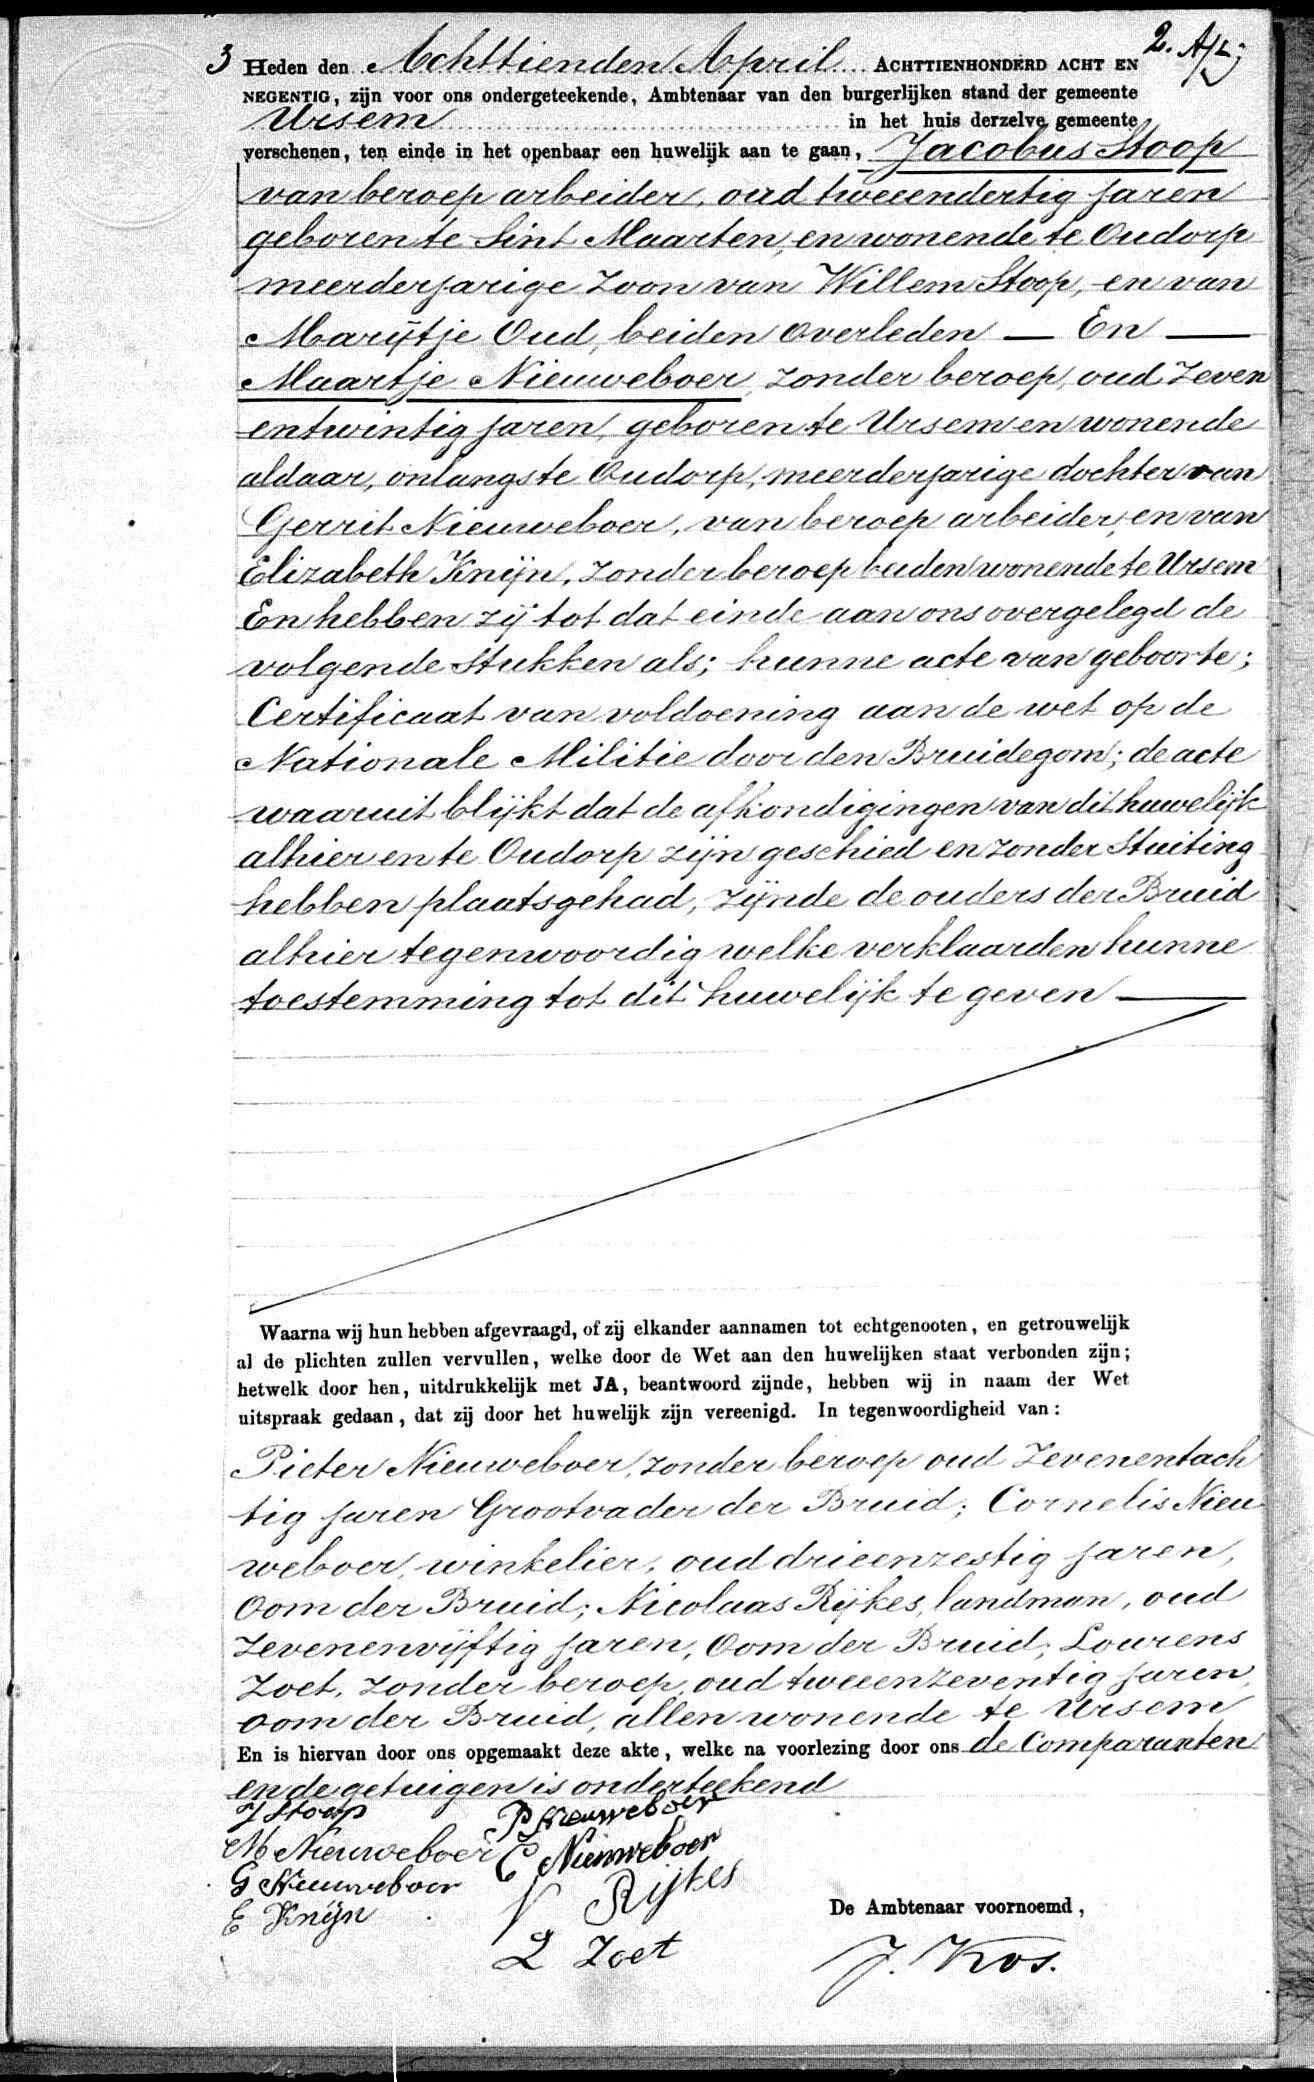 3 Heden den Achttienden April ACHTTIENHONDERD ACHT EN
2.
NEGENTIG, zijn voor ons ondergeteekende, Ambtenaar van den burgerlijken stand der gemeente
Ursem in het huis derzelve gemeente
verschenen, ten einde in het openbaar een huwelijk aan te gaan, Jacobus Stoop
van beroep arbeider, oud tweeendertig jaren
geboren te Sint Maarten, en wonende te Oudorp
meerderjarige Zoon van Willem Stoop, en van
Marijtje Oud, beiden overleden — En —
Maartje Nieuweboer, zonder beroep, oud Zeven
entwintig jaren, geboren te Ursem en wonende
aldaar, onlangs te Oudorp, meerderjarige dochter van
Gerrit Nieuweboer, van beroep arbeider, en van
Elizabeth Knijn, zonder beroep beiden wonende te Ursem
En hebben zij tot dat einde aan ons overgelegd de
volgende Stukken als; hunne acte van geboorte;
Certificaat van voldoening aan de wet op de
Nationale Militie door den Bruidegom; de acte
waaruit blijkt dat de afkondigingen van dit huwelijk
alhier en te Oudorp zijn geschied en zonder Stuiting
hebben plaatsgehad, zijnde de ouders der Bruid
alhier tegenwoordig welke verklaarden hunne
toestemming tot dit huwelijk te geven —
Waarna wij hun hebben afgevraagd, of zij elkander aannamen tot echtgenooten, en getrouwelijk
al de plichten zullen vervullen, welke door de Wet aan den huwelijken staat verbonden zijn;
hetwelk door hen, uitdrukkelijk met JA, beantwoord zijnde, hebben wij in naam der Wet
uitspraak gedaan, dat zij door het huwelijk zijn vereenigd. In tegenwoordigheid van:
Pieter Nieuweboer, zonder beroep oud Zevenentach
tig jaren Grootvader der Bruid; Cornelis Nieu
weboer, winkelier, oud drieenzestig jaren,
Oom der Bruid; Nicolaas Rijkes, landman, oud
Zevenenvijftig jaren, Oom der Bruid; Lourens
Zoet, zonder beroep, oud tweeenzeventig jaren,
oom der Bruid, allen wonende te Ursem
En is hiervan door ons opgemaakt deze akte, welke na voorlezing door ons de Comparanten
en de getuigen is onderteekend
J Stoop
P Nieuweboer
M Nieuweboer
C Nieuweboer
G Nieuweboer
N Rijkes
E Knijn
L Zoet
De Ambtenaar voornoemd,
J. Kos.